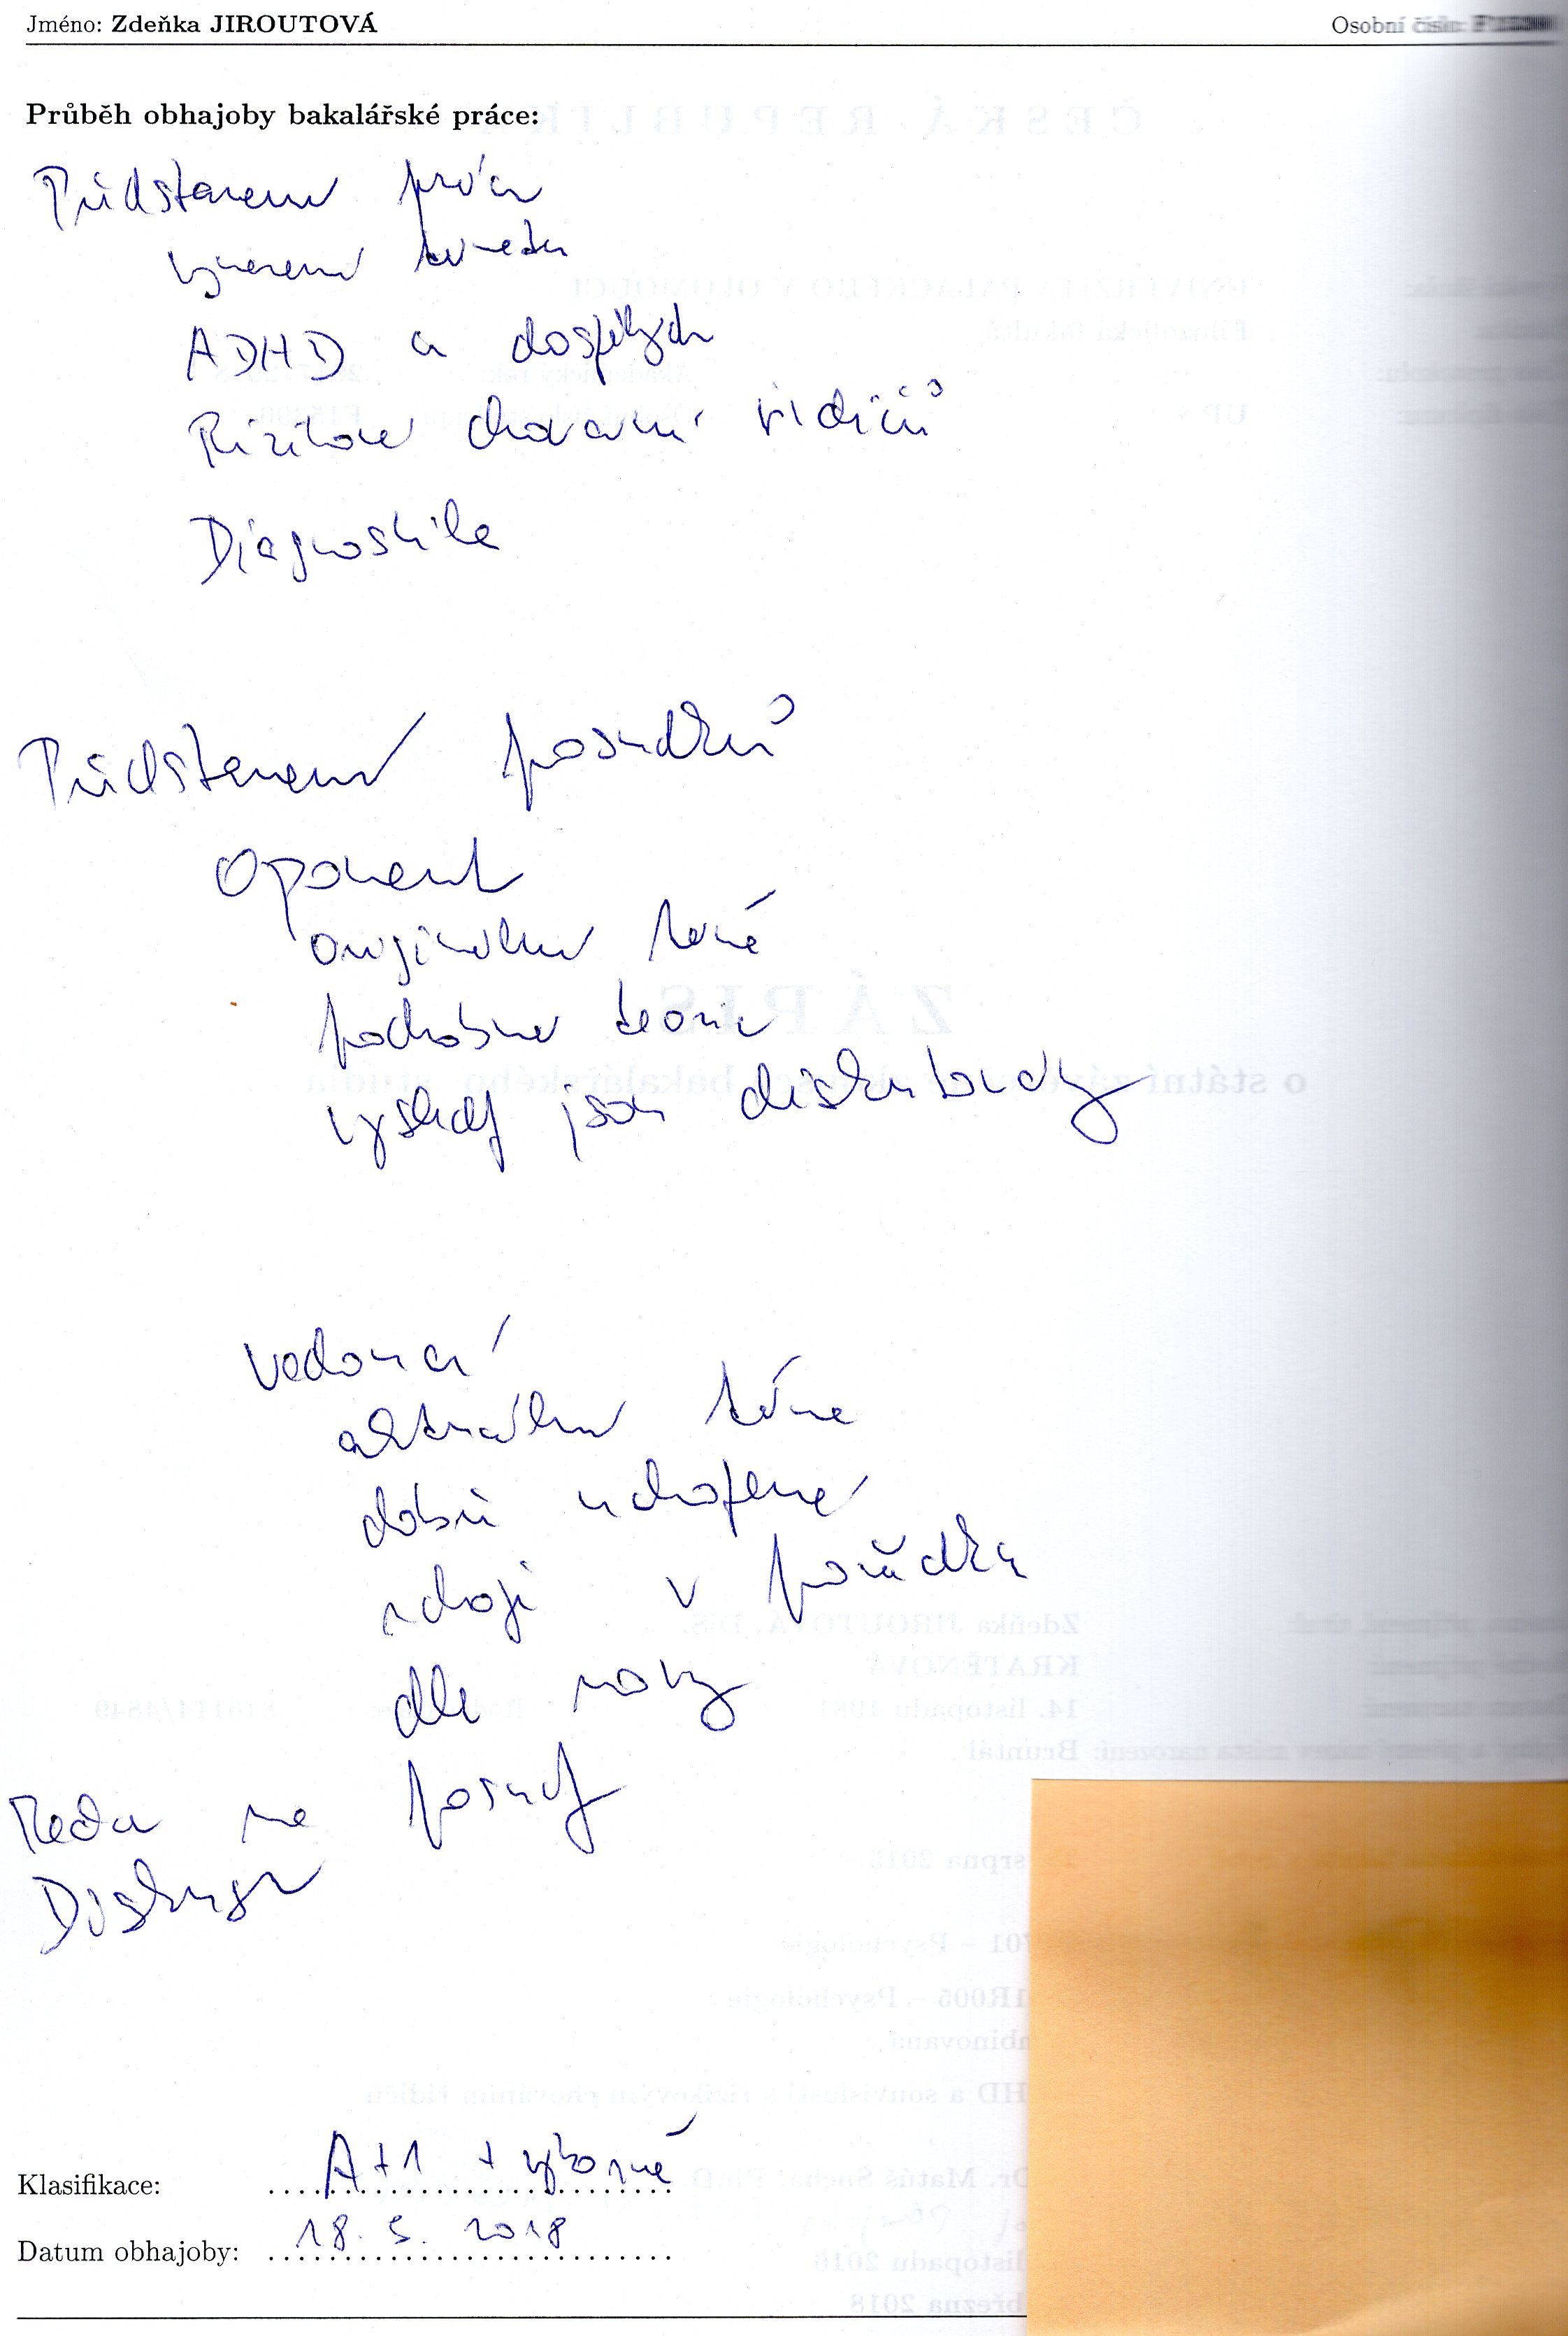 Jméno: Zdeňka JIROUTOVÁ Osobní číslo:
Průběh obhajoby bakalářské práce:
Představení práce
vymezení
ADHD a dospělých
Rizikové chování řidičů
Diagnostika
Představení posudků
Oponent
originální téma
podrobná teorie
výsledky jsou diskutovány
Vedoucí
aktuální téma
dobře uchopené
zdroje v pořádku
dle normy
Reakce na posudky
Diskuse
Klasifikace: A + 1 + výborně
Datum obhajoby: 18. 5. 2018